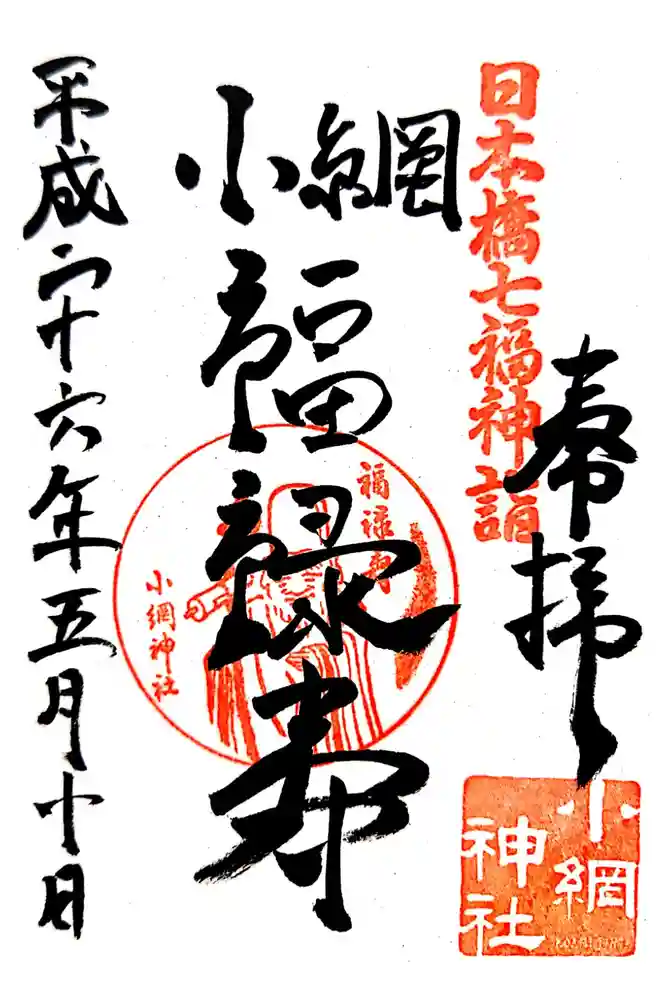 日本橋七福神詣
奉拝
小網
神社
小網
福禄寿
福禄寿
小網神社
平成二十六年五月十日